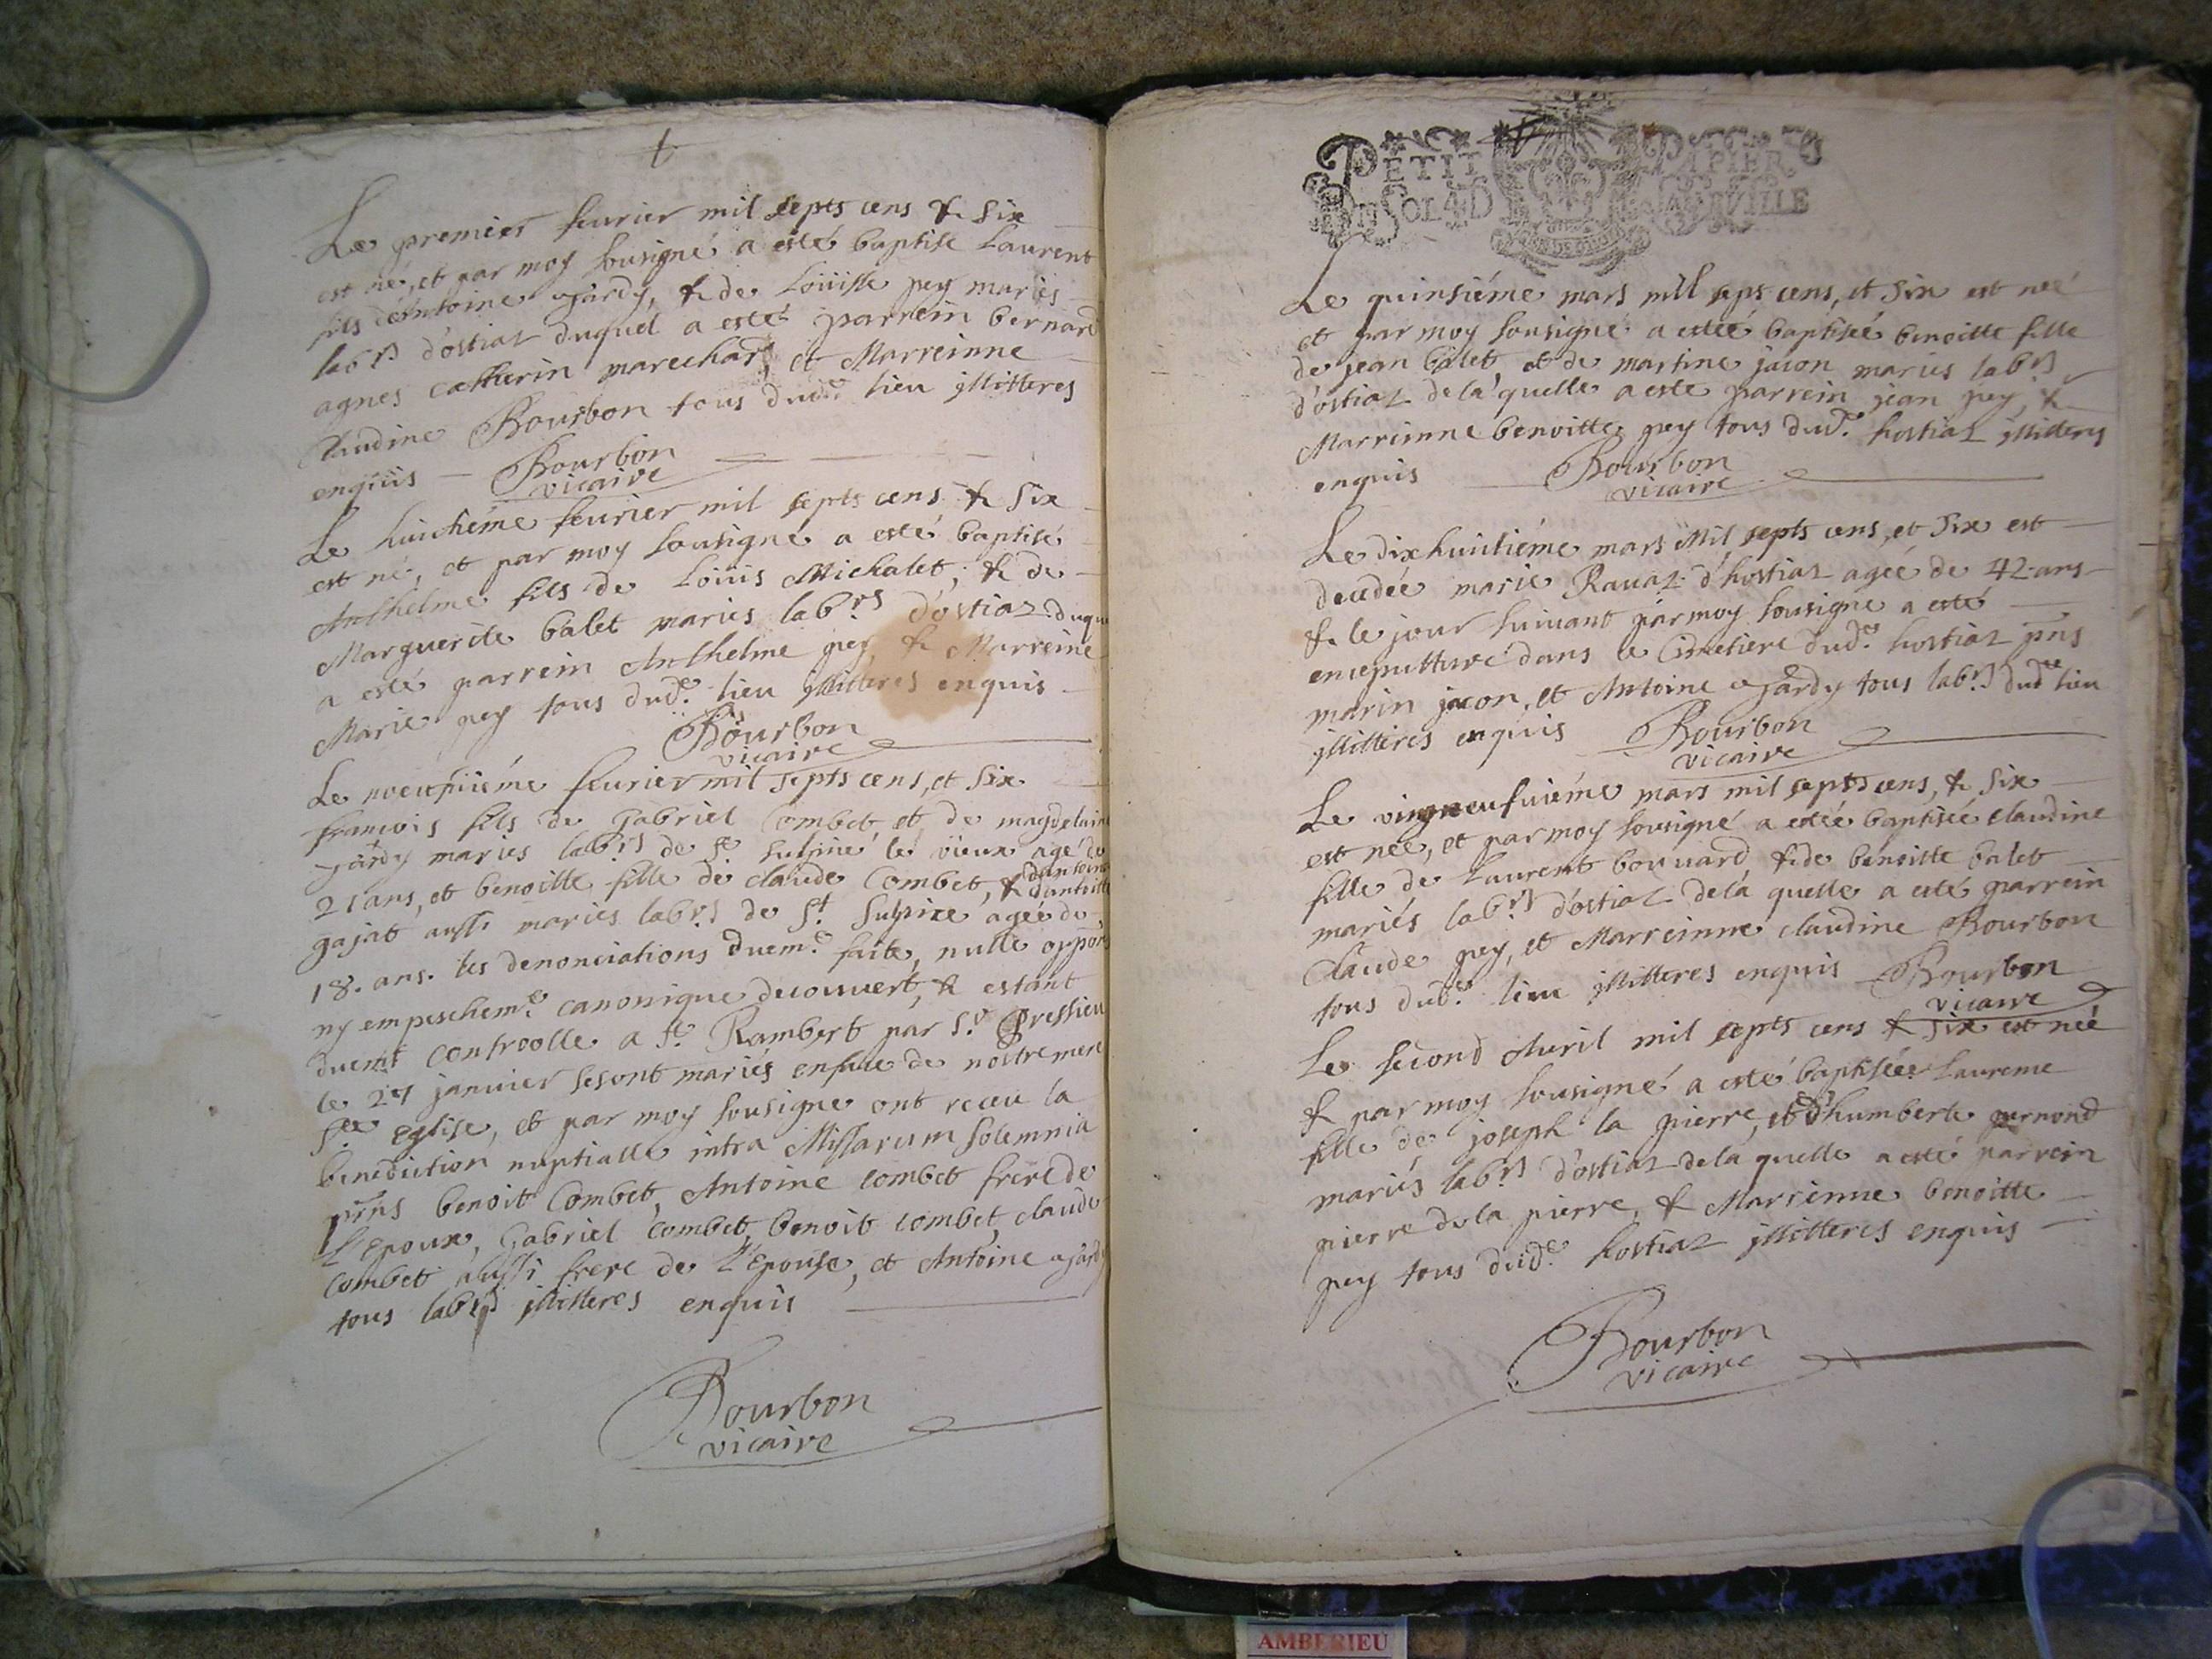 Le premier feurier mil septs cens & six
est né, et par moy sousigné a esté baptise Laurent
fils d'Antoine Jardy, & de Loüisse pey mariés
labrs d'ostiaz duquel a esté parrein bernard
agnes catherin marechar, et Marreinne
Claudine Bourbon tous dude lieu jllitteres
enquis — Bourbon
vicaire
Le huictiéme feurier mil septs cens & six
est né, et par moy sousigne a esté baptisé
Anthelme fils de Loüis Michalet, & de
Marguerite balet maries labrs d'ostiaz duquel
a esté parrein Anthelme pey, & Marreine
Marie pey tous dude lieu jllitteres enquis
Bourbon
vicaire
Le neufuiéme feurier mil septs cens, et six
francois fils de Gabriel Combet et de magdelaine
Jardy maries labrs de st sulpice le vieux agé de
21 ans, et benoitte fille de claude Combet, & d'antoinette
gajat aussi mariés labrs de St Sulpice agée de
18. ans. les denonciations duemt faite, nulle opposon
ny empeschemt canonique decouvert, & estant
duemt controolle a st Rambert par Sr Gressieu
le 27 janvier se sont mariés enface de nostre mere
Ste Eglise, et par moy sousigne ont receu la
benediction nuptialle intra Missarum solemnia
pns benoit Combet, Antoine combet frere de
L'Epoux, Gabriel Combet, benoit combet, claude
combet aussi frere de L'Epouse, et Antoine Jardy
tous labrs jllitteres enquis
Bourbon
vicaire
PETIT PAPIER
DU SOL 4 D LA FVILLE
Le quinsiéme mars mil septs cens, et six est née
et par moy sousigné a estée baptisée benoitte fille
de jean balet, et de martine jacon mariés labrs
d'ostiaz de la quelle a esté parrein jean pey, &
Marreinne benoitte pey tous dude hostiaz jllitteres
enquis Bourbon
vicaire
Le dixhuictiéme mars Mil septs cens, et six est
decedée marie Ravaz d'hostiaz agée de 42 ans
& le jour suivant par moy sousigné a esté
ensepulturé dans le Cimetiere dude hostiaz pns
marin jacon, et Antoine Jardy tous labrs dude lieu
jllitteres enquis Bourbon
vicaire
Le vingneufuiéme mars mil septs cens, & six
est née, et par moy sousigné a estée baptisée claudine
fille de Laurent bouvard & de benoitte balet
mariés labrs d'ostiaz de la quelle a esté parrein
Claude pey, et Marreinne claudine Bourbon
tous dude lieu jllitteres enquis Bourbon
vicaire
Le second Auril mil septs cens & six est née
& par moy sousigné a esté baptisée Laurence
fille de joseph la pierre, et d'humberte pernond
mariés labrs d'ostiaz de la quelle a esté parrein
pierre de la pierre, & Marreinne benoitte
pey tous dude hostiaz jllitteres enquis
Bourbon
vicaire
AMBERIEU